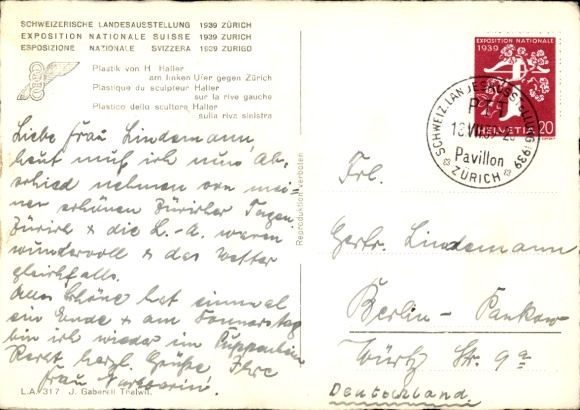 SCHWEIZERISCHE LANDESAUSSTELLUNG 1939 ZÜRICH
EXPOSITION NATIONALE SUISSE 1939 ZURICH
ESPOSIZIONE NAZIONALE SVIZZERA 1939 ZURIGO
Plastik von H. Haller
am linken Ufer gegen Zürich
Plastique du sculpteur Haller
sur la rive gauche
Plastico dello scultore Haller
sulla riva sinistra
Liebe Frau Lindemann,
heut muß ich nun Ab-
schied nehmen von mei-
ner schönen Züricher Tagen.
Zürich & die L.-A. waren
wundervoll & das Wetter
gleichfalls.
Alles Schöne hat einmal
ein Ende & am Donnerstag
bin ich wieder im
Recht herzl. Grüße Ihre
Frau
L.A. 317 J. Gaberell Thalwil.
Reproduktion verboten
EXPOSITION NATIONALE
1939
HELVETIA 20
SCHWEIZ. LANDESAUSSTELLUNG 1939
PTT
Pavillon
ZÜRICH
Frl.
Gertr. Lindemann
Berlin - Pankow
Würtz Str. 9a
Deutschland.